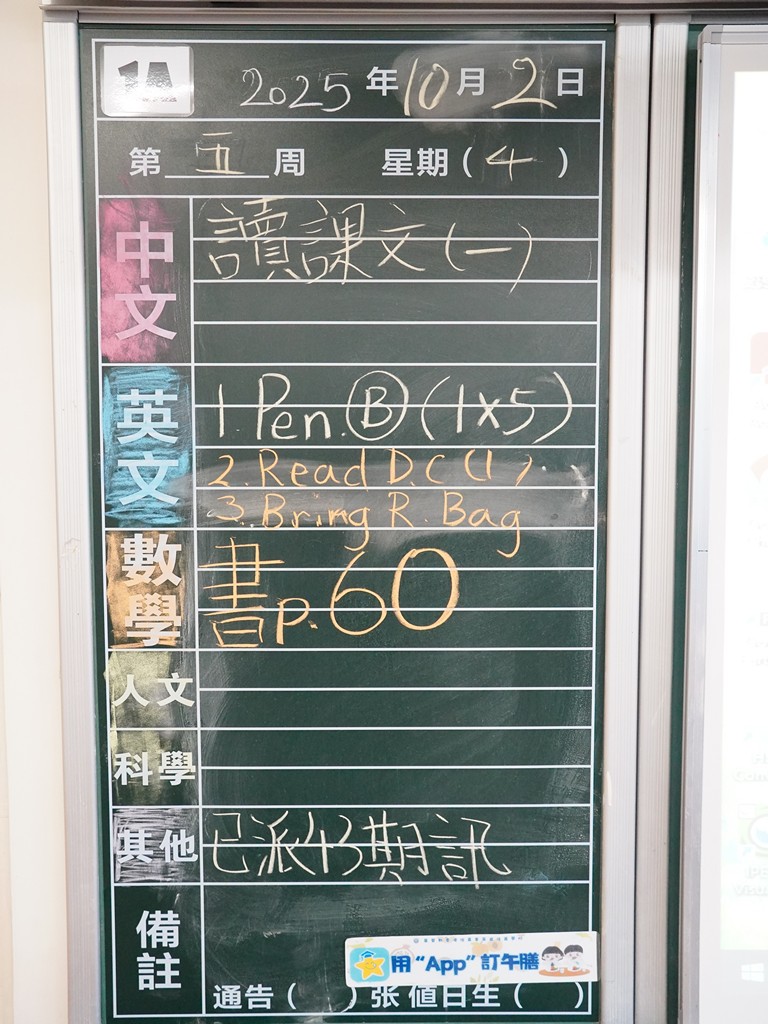 1A 2025年10月2日
第五周 星期(4)
中文
讀課文(一)
英文
1. Pen. Ⓑ (1×5)
2. Read D.C (1)
3. Bring R. Bag
數學
書p.60
人文
科學
其他
備註
用“App”訂午膳
通告( )张 值日生( )